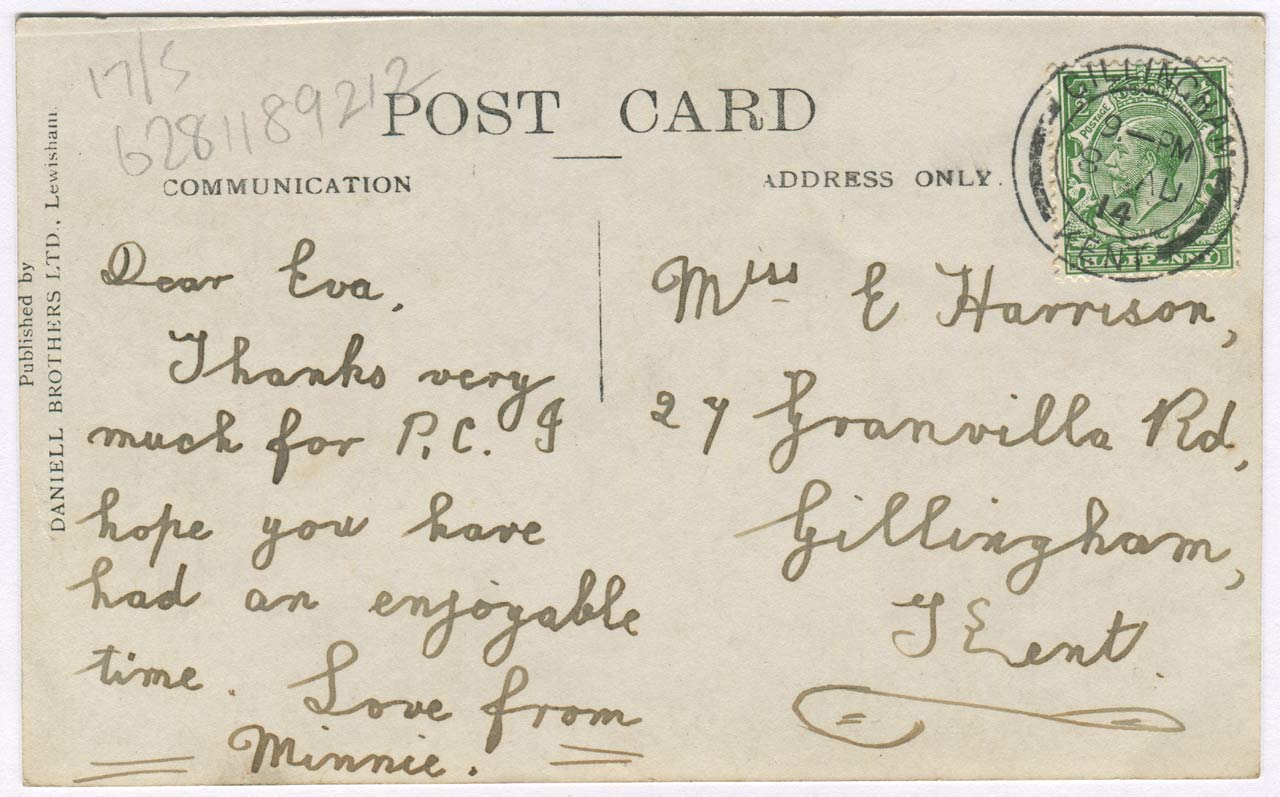 17/5
6281189212
POST CARD
COMMUNICATION
ADDRESS ONLY.
Published by
DANIELL BROTHERS LTD., Lewisham.
GILLINGHAM
9-PM
8 AU
14
KENT
POSTAGE
HALFPENNY
Dear Eva,
Thanks very
much for P.C. I
hope you have
had an enjoyable
time. Love from
Minnie.
Miss E Harrison,
27 Granville Rd,
Gillingham,
Kent.